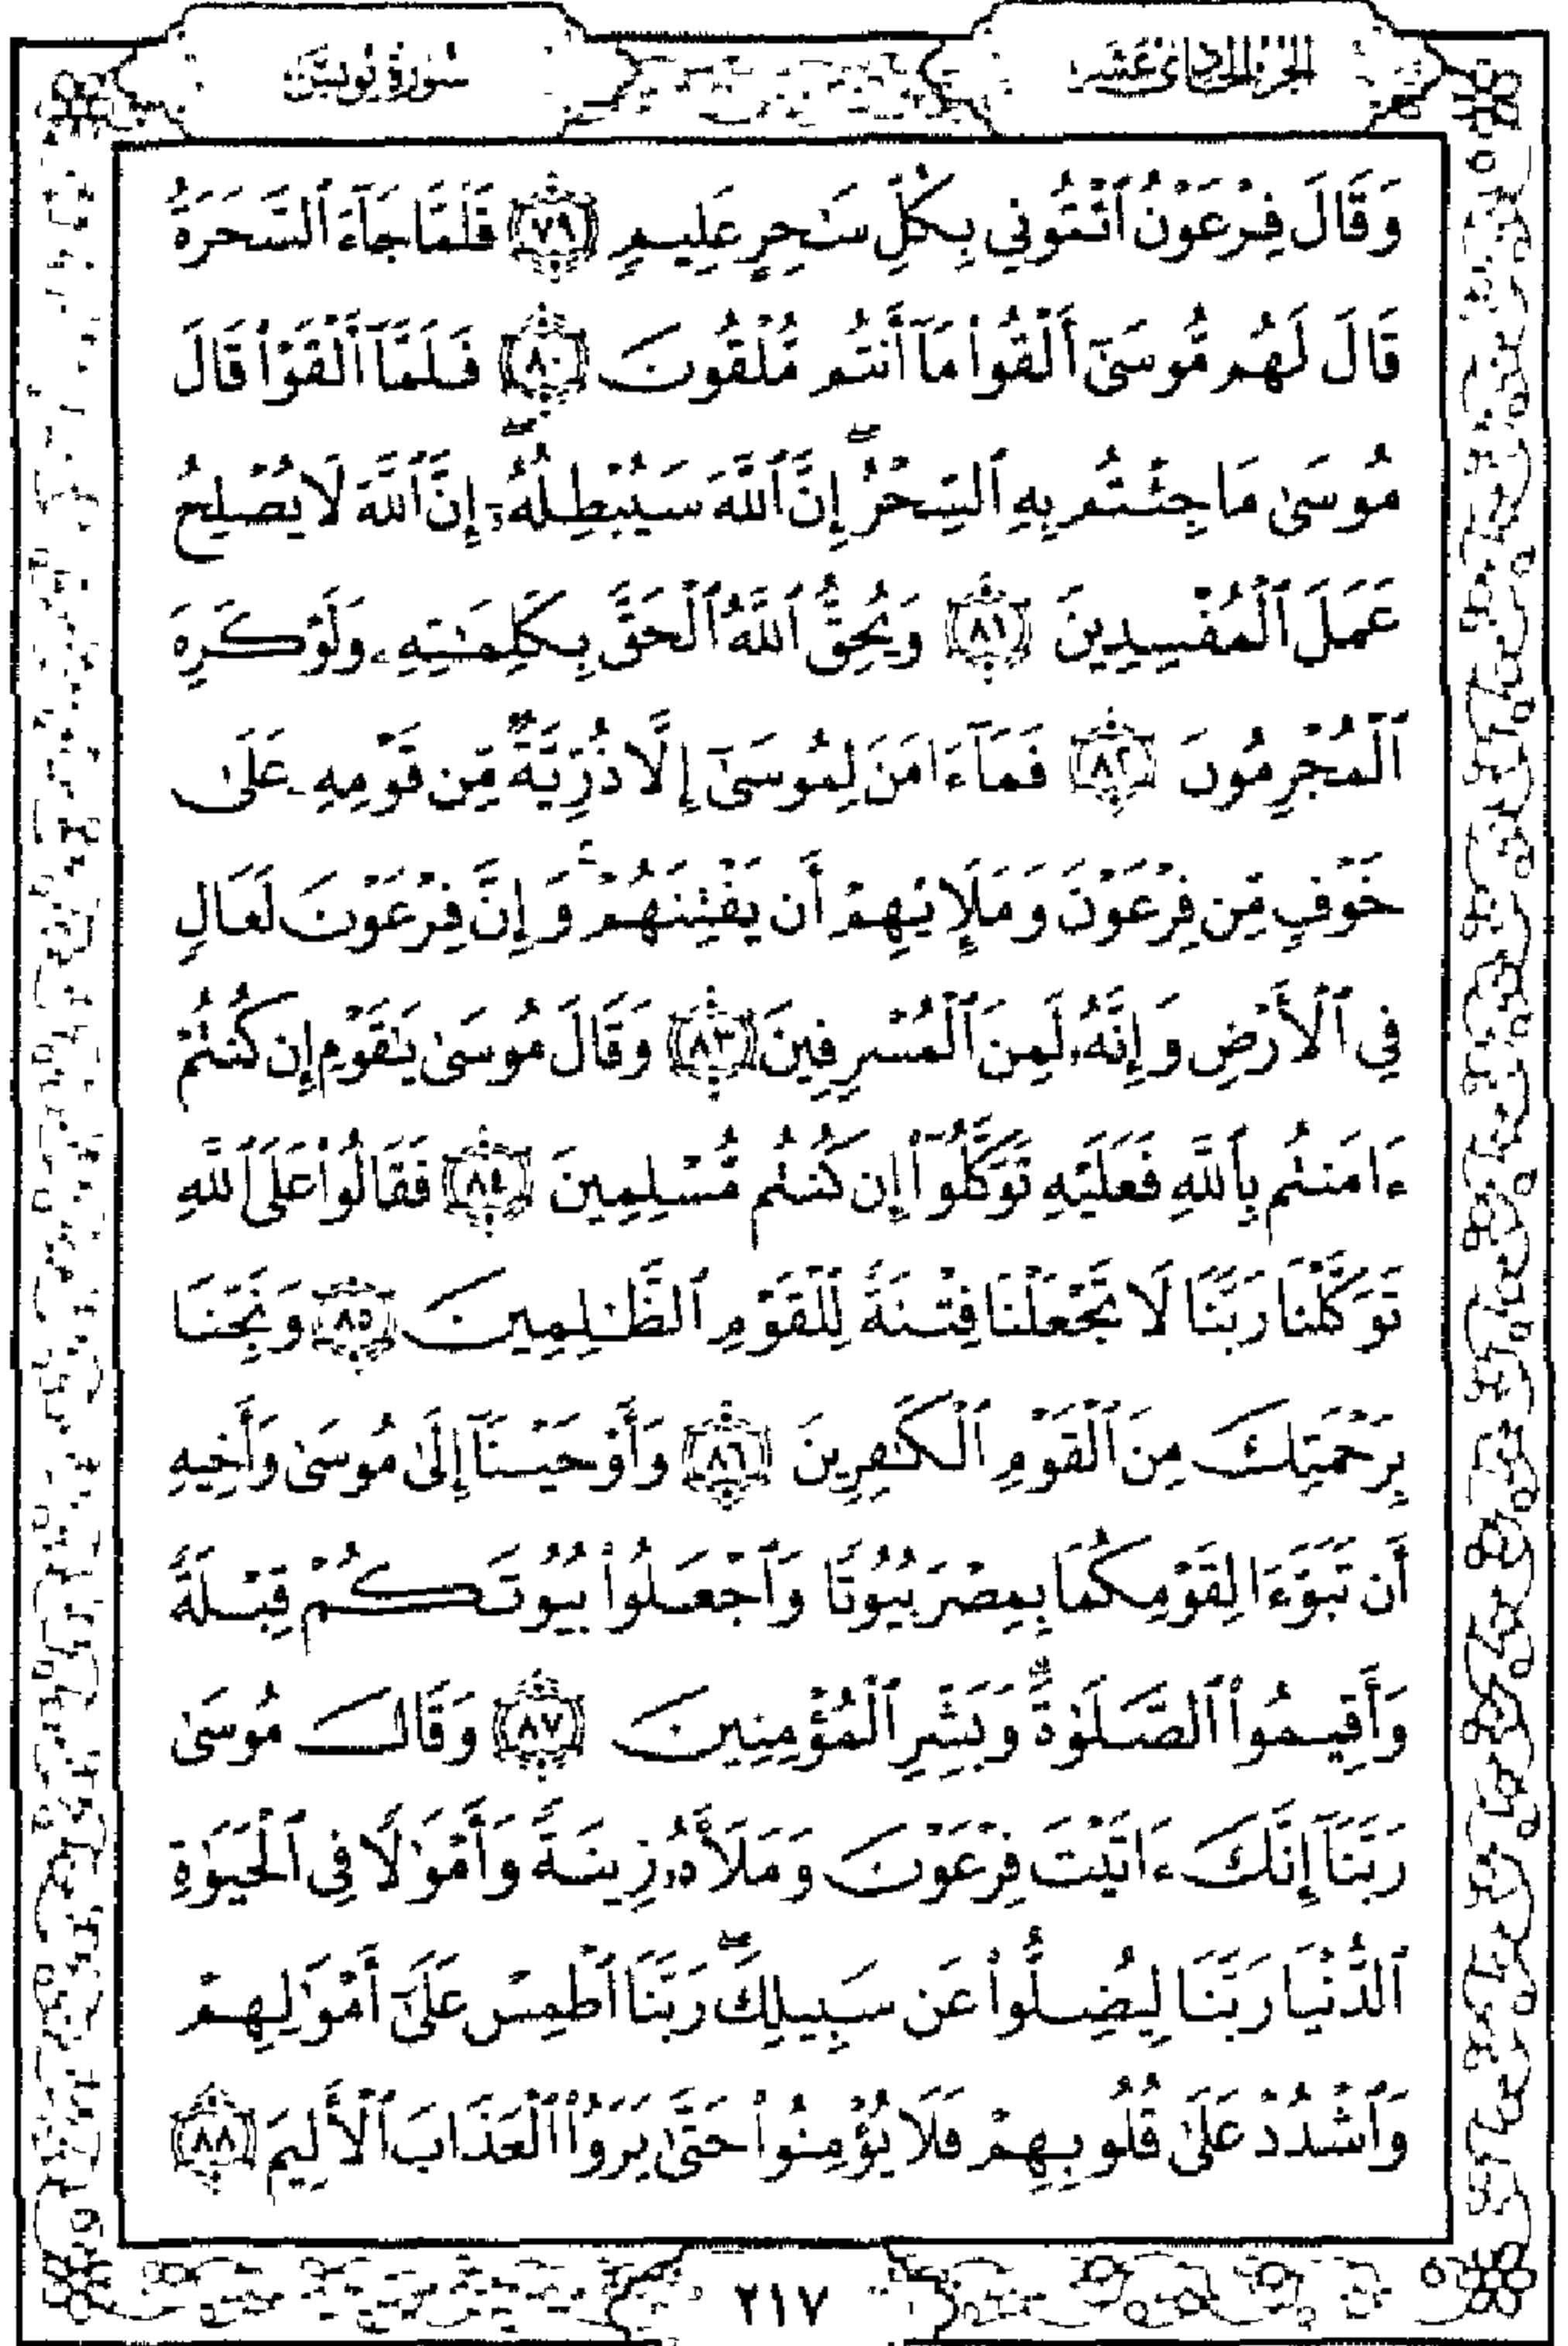 الجزء الحادي عشر
سورة يونس
وَقَالَ فِرْعَوْنُ ٱئْتُونِي بِكُلِّ سَٰحِرٍ عَلِيمٍ ﴿٧٩﴾ فَلَمَّا جَآءَ ٱلسَّحَرَةُ
قَالَ لَهُم مُّوسَىٰٓ أَلْقُوا۟ مَآ أَنتُم مُّلْقُونَ ﴿٨٠﴾ فَلَمَّآ أَلْقَوْا۟ قَالَ
مُوسَىٰ مَا جِئْتُم بِهِ ٱلسِّحْرُ ۖ إِنَّ ٱللَّهَ سَيُبْطِلُهُۥٓ ۖ إِنَّ ٱللَّهَ لَا يُصْلِحُ
عَمَلَ ٱلْمُفْسِدِينَ ﴿٨١﴾ وَيُحِقُّ ٱللَّهُ ٱلْحَقَّ بِكَلِمَٰتِهِۦ وَلَوْ كَرِهَ
ٱلْمُجْرِمُونَ ﴿٨٢﴾ فَمَآ ءَامَنَ لِمُوسَىٰٓ إِلَّا ذُرِّيَّةٌ مِّن قَوْمِهِۦ عَلَىٰ
خَوْفٍ مِّن فِرْعَوْنَ وَمَلَإِي۟هِمْ أَن يَفْتِنَهُمْ ۚ وَإِنَّ فِرْعَوْنَ لَعَالٍ
فِي ٱلْأَرْضِ وَإِنَّهُۥ لَمِنَ ٱلْمُسْرِفِينَ ﴿٨٣﴾ وَقَالَ مُوسَىٰ يَٰقَوْمِ إِن كُنتُمْ
ءَامَنتُم بِٱللَّهِ فَعَلَيْهِ تَوَكَّلُوٓا۟ إِن كُنتُم مُّسْلِمِينَ ﴿٨٤﴾ فَقَالُوا۟ عَلَى ٱللَّهِ
تَوَكَّلْنَا رَبَّنَا لَا تَجْعَلْنَا فِتْنَةً لِّلْقَوْمِ ٱلظَّٰلِمِينَ ﴿٨٥﴾ وَنَجِّنَا
بِرَحْمَتِكَ مِنَ ٱلْقَوْمِ ٱلْكَٰفِرِينَ ﴿٨٦﴾ وَأَوْحَيْنَآ إِلَىٰ مُوسَىٰ وَأَخِيهِ
أَن تَبَوَّءَا لِقَوْمِكُمَا بِمِصْرَ بُيُوتًا وَٱجْعَلُوا۟ بُيُوتَكُمْ قِبْلَةً
وَأَقِيمُوا۟ ٱلصَّلَوٰةَ ۗ وَبَشِّرِ ٱلْمُؤْمِنِينَ ﴿٨٧﴾ وَقَالَ مُوسَىٰ
رَبَّنَآ إِنَّكَ ءَاتَيْتَ فِرْعَوْنَ وَمَلَأَهُۥ زِينَةً وَأَمْوَٰلًا فِي ٱلْحَيَوٰةِ
ٱلدُّنْيَا رَبَّنَا لِيُضِلُّوا۟ عَن سَبِيلِكَ ۖ رَبَّنَا ٱطْمِسْ عَلَىٰٓ أَمْوَٰلِهِمْ
وَٱشْدُدْ عَلَىٰ قُلُوبِهِمْ فَلَا يُؤْمِنُوا۟ حَتَّىٰ يَرَوُا۟ ٱلْعَذَابَ ٱلْأَلِيمَ ﴿٨٨﴾
٢١٧